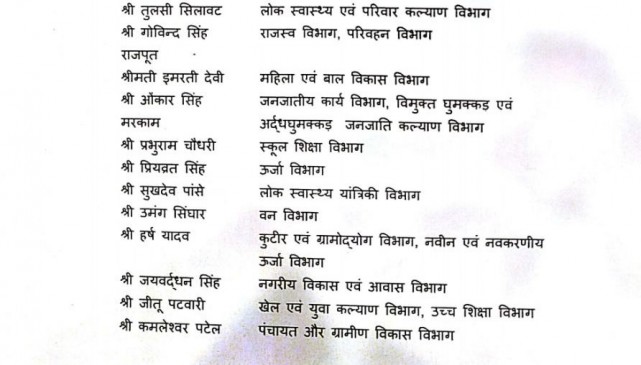 श्री तुलसी सिलावट लोक स्वास्थ्य एवं परिवार कल्याण विभाग
श्री गोविन्द सिंह राजस्व विभाग, परिवहन विभाग
राजपूत
श्रीमती इमरती देवी महिला एवं बाल विकास विभाग
श्री ओंकार सिंह जनजातीय कार्य विभाग, विमुक्त घुमक्कड़ एवं
मरकाम अर्द्धघुमक्कड़ जनजाति कल्याण विभाग
श्री प्रभुराम चौधरी स्कूल शिक्षा विभाग
श्री प्रियव्रत सिंह ऊर्जा विभाग
श्री सुखदेव पांसे लोक स्वास्थ्य यांत्रिकी विभाग
श्री उमंग सिंघार वन विभाग
श्री हर्ष यादव कुटीर एवं ग्रामोद्योग विभाग, नवीन एवं नवकरणीय
ऊर्जा विभाग
श्री जयवर्द्धन सिंह नगरीय विकास एवं आवास विभाग
श्री जीतू पटवारी खेल एवं युवा कल्याण विभाग, उच्च शिक्षा विभाग
श्री कमलेश्वर पटेल पंचायत और ग्रामीण विकास विभाग